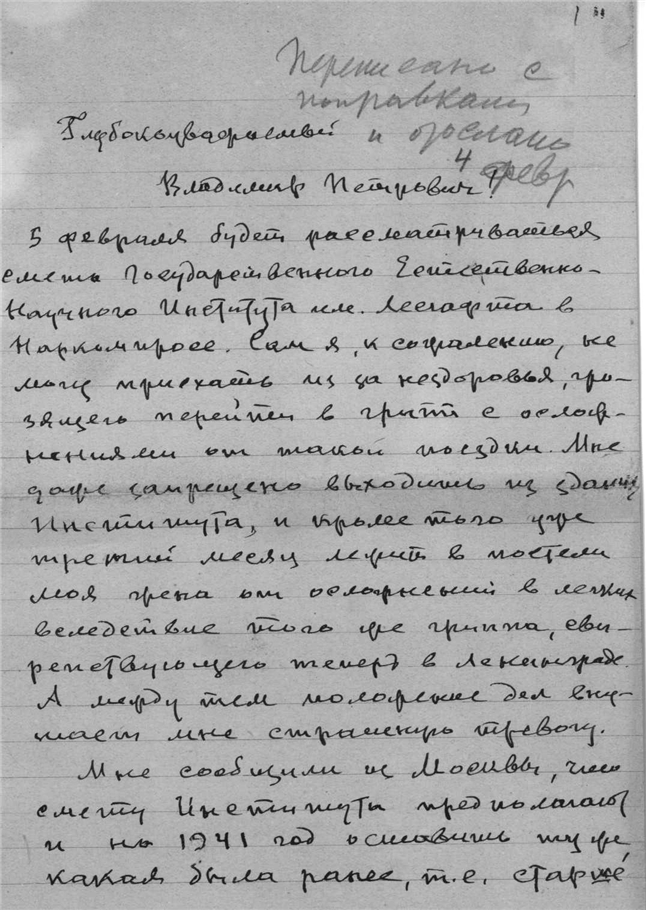 Переписано с
поправками
и отослано
4 февр
Глубокоуважаемый
Владимир Петрович!
5 февраля будет рассматриваться
смета Государственного Естественно-
Научного Института им. Лесгафта в
Наркомпросе. Сам я, к сожалению, не
могу приехать из за нездоровья, гро-
зящего перейти в грипп с ослож-
нениями от такой поездки. Мне
даже запрещено выходить из здания
Института, и кроме того уже
третий месяц лежит в постели
моя жена от осложнений в легких
вследствие того же гриппа, сви-
репствующего теперь в Ленинграде.
А между тем положение дел вну-
шает мне страшную тревогу.
Мне сообщили из Москвы, что
смету Института предполагают
и на 1941 год оставить ту же
какая была ранее, т.е. старше